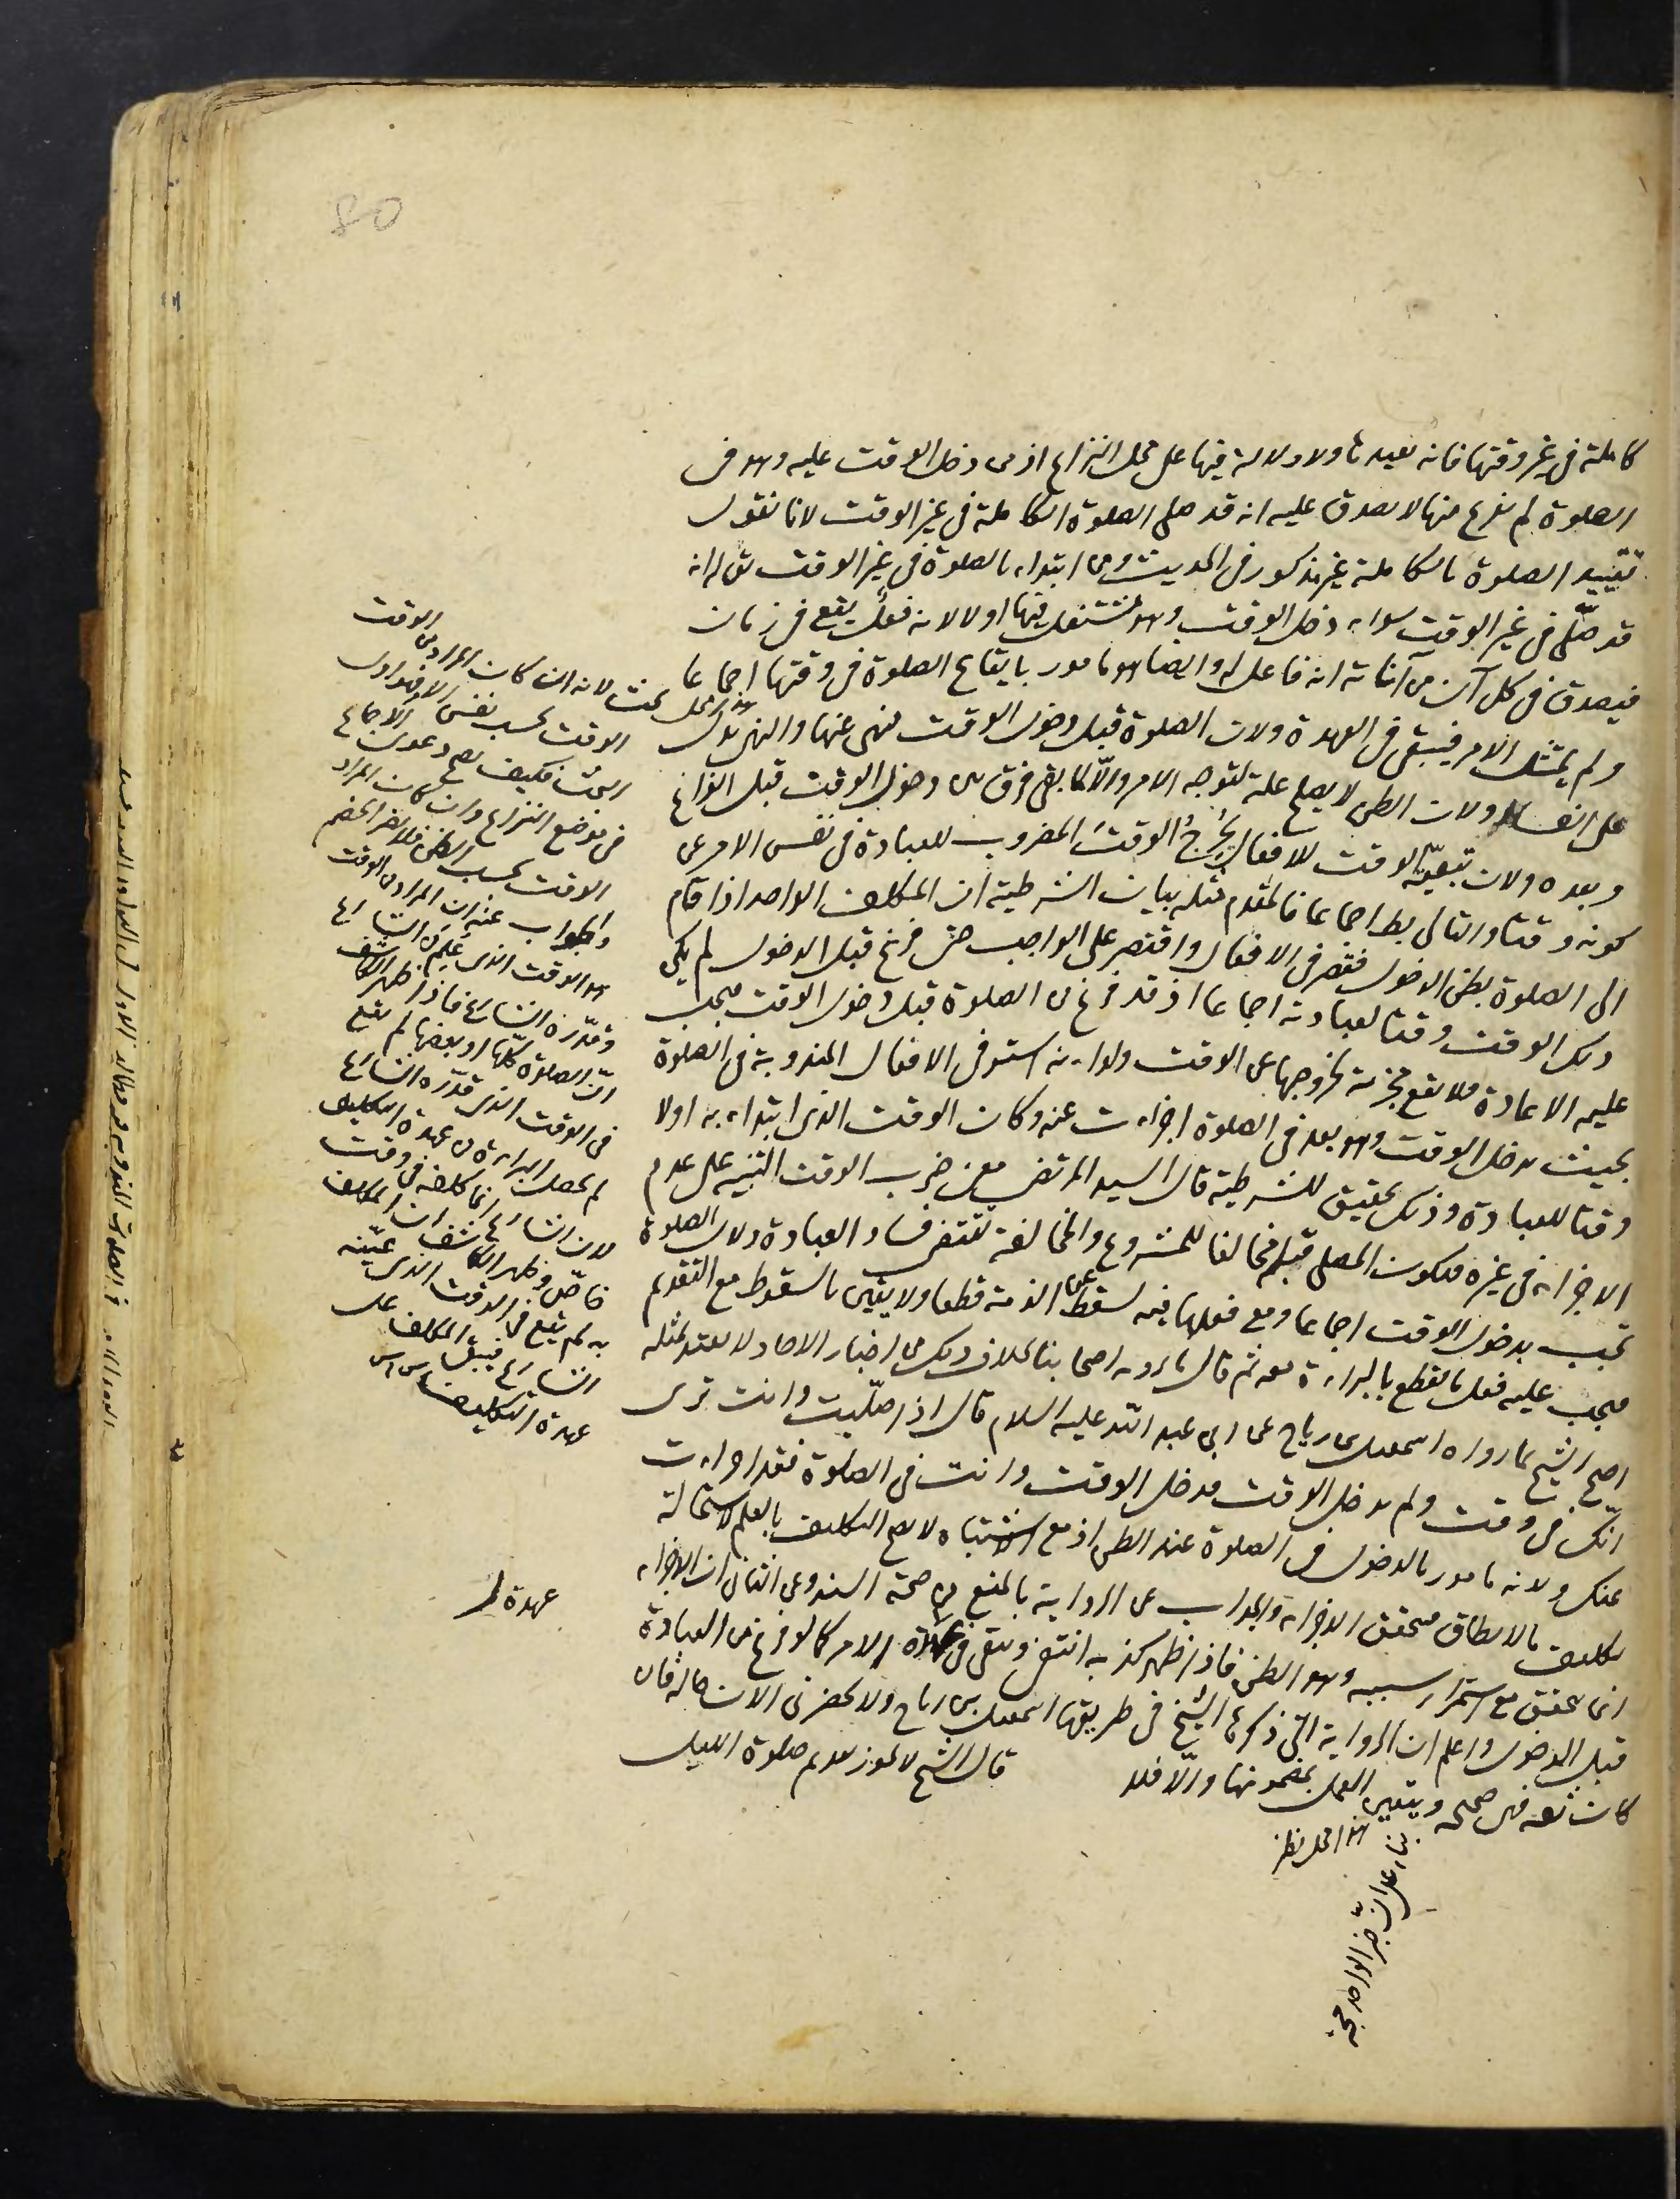 80
كاملة في غير وقتها فانه يعيد ما ولا دلالة فيها على محل النزاع اذ من دخل الوقت عليه وهو في
الصلوة لم يفرغ منها لا يصدق عليه انه قد صلى الصلوة الكاملة في غير الوقت لانا نقول
تقييد الصلوة بالكاملة غير مذكور في الحديث ومن ابتداء بالصلوة في غير الوقت يقال انه
قد صلّى في غير الوقت سواء دخل الوقت وهو مشتغل فيها او لا لانه فعل يقع في زمان
فيصدق في كل آن من آناته انه فاعل له وايضا هو مامور بايقاع الصلوة في وقتها اجماعا
ولم يمتثل الامر فيبقى في العهدة ولان الصلوة قبل دخول الوقت منهي عنها والنهي يدل
على الفساد ولان الظن لا يصلح علة لتوجه الامر والّا لما بقي فرق بين دخول الوقت قبل الفراغ
وبعده ولان تبعيّة الوقت للافعال يُخرجُ الوقتَ المضروب للعبادة في نفس الامر عن
كونه وقتا والتالي بط اجماعا فالمقدم مثله بيان الشرطية ان المكلف الواحد اذا قام
الى الصلوة بظن الدخول فقصر في الافعال واقتصر على الواجب حتى فرغ قبل الدخول لم يكن
ذلك الوقت وقتا لعبادته اجماعا اذ قد فرغ من الصلوة قبل دخول الوقت فيجب
عليه الاعادة فلا يقع مجزية لخروجها عن الوقت ولو انه استوفى الافعال المندوبة في الصلوة
بحيث يدخل الوقت وهو بعد في الصلوة اجزاءت عنه وكان الوقت الذي ابتداء به اولا
وقتا للعبادة وذلك تحقيق للشرطية قال السيد المرتضى معنى ضرب الوقت التنبيه على عدم
الاجزاء في غيره فيكون المصلي قبله مخالفا للمشروع والمخالفة تقتضي فساد العبادة ولان الصلوة
تجب بدخول الوقت اجماعا ومع فعلها فيه يسقط عن الذمة قطعا ولا يقين بالسقوط مع التقدم
فيجب عليه فعل ما يقطع بالبراءة معه ثم قال ما يرويه اصحابنا بخلاف ذلك من اخبار الاحاد لا يعتد بمثله
احتج الشيخ بما رواه اسمعيل بن رياح عن ابي عبد الله عليه السلام قال اذا صلّيت وانت ترى
انّك في وقت ولم يدخل الوقت فدخل الوقت وانت في الصلوة فقد اجزاءت
عنك ولانه مامور بالدخول في الصلوة عند الظن اذ مع الاشتباه لا يصح التكليف بالعلم لاستحالة
تكليف ما لا يطاق فيتحقق الاجزاء والجواب عن الرواية بالمنع من صحة السند وعن الثاني ان الاجزاء
انما يتحقق مع استمرار سببه وهو الظن فاذا ظهر كذبه انتفى ويبقى في عهدة الامر كما لو فرغ من العبادة
قبل الدخول واعلم ان الرواية التي ذكرها الشيخ في طريقها اسمعيل بن رياح ولا يحضرني الان حاله فان
كان ثقة فهي صحيحة ويتعين العمل بمضمونها والّا فلا
قال الشيخ لا يجوز تقديم صلوة الليل
هذا محل نظر
بناء على انّ خبر الواحد حجة
هذا محل بحث لانه ان كان المراد من الوقت
الوقت بحسب نفس الامر فهو اول
البحث فكيف يصح دعوى الاجماع
في موضع النزاع وان كان المراد
الوقت بحسب الظن فلا يضر الخصم
والجواب عنه ان المراد من الوقت
هو الوقت الذي عيّن الشارع
وقدّره الشارع فاذا ظهر الكاشف
انّ الصلوة كلّها او بعضها لم يقع
في الوقت الذي قدّره الشارع
لم يحصل البراءة من عهدة التكليف
لان الشارع انما كلفه في وقت
خاصّ وظهر الكاشف ان المكلف
به لم يقع في الوقت الذي عيّنه
الشارع فيبقى المكلف على
عهدة التكليف
عهدة